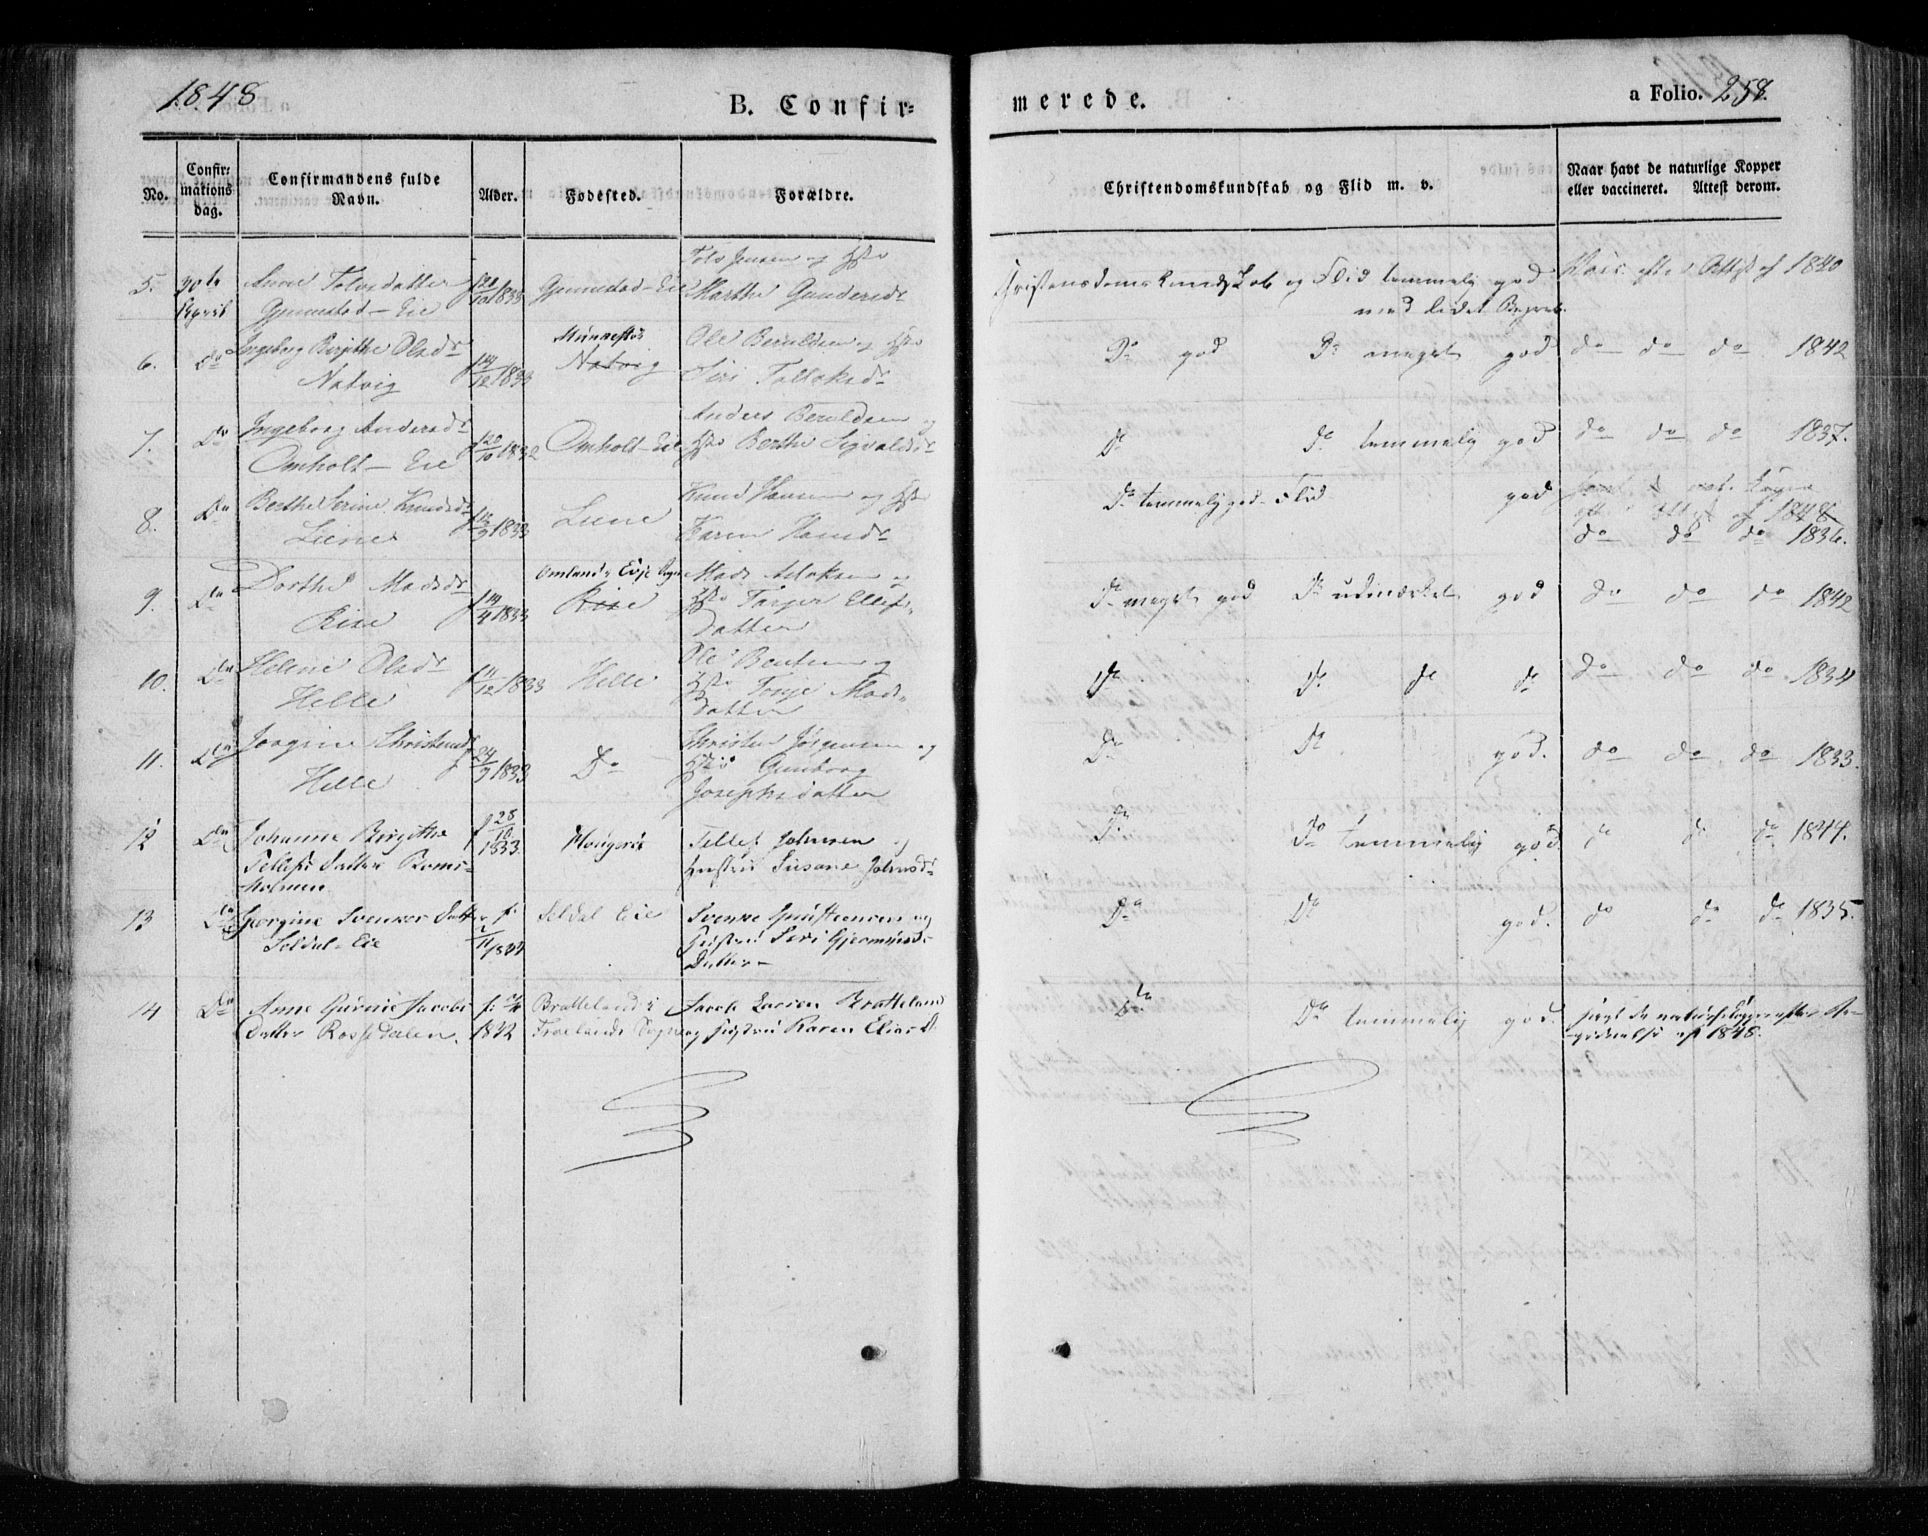 1848
B. Confir=
merede.
a Folio. 258.
No.
Confir=
mations
dag.
Confirmandens fulde
Navn.
Alder.
Fødested.
Forældre.
Christendomskundskab og Flid m. v.
Naar havt de naturlige Kopper
eller vaccineret. Attest derom.
5. 30te April
Anne Tolvsdatter
Gjennestad-Eie
f 20/10 1833
Gjennestad-Eie
Tolv Jensen og Hstr
Marthe Gundersdr
Christendomskundskab og Flid temmelig god
med ledet Begreb.
Vacc. efter Attest af 1840
6. Do
Ingeborg Birgithe Olsdr
Natvig
f 14/12 1833
Natvig
Ole Beruldsen og Hstr
Siri Tallaksdr
Do god Do meget god
do do do 1842
7. Do
Ingeborg Andersdr
Omholt-Eie
f 20/10 1832
Omholt-Eie
Anders Beruldsen og
Hstr Berthe Sigvaldsdr
Do do temmelig god
do do do 1837.
8. Do
Berthe Serine Knudsdr
Liene
1833
Liene
Knud Hansen og Hstr
Karen
Do temmelig god Flid god
1848
do do do 1836.
9. Do
Dorthe Madsdr
Rise
f 14/4 1833
Omland i Eie Sogn
Rise
Mads Aslaksen og
Hstr Torjer Ellefs-
datter
Do meget god Do udmærket god
do do do 1842
10. Do
Helene Olsdr
Helle
f 11/12 1833
Helle
Ole Bentsen og
Hstr Tonje Mads-
datter
Do Do do do
do do do 1834
11. Do
Jørgine Christensdr
Helle
f 24/9 1833
Do
Christen Jørgensen og
Hstr Gunborg
Josephsdatter
Do Do god.
do do do 1833.
12 Do
Johanne Birgithe
Tellefs Datter Roms-
holmen
f 28/10 1833.
Tellef Johnsen og
Hustru Susane Johnsdr
Do Do temmelig god
do do do 1844.
13 Do
Georgine Svenkes Datter
Seldal-Eie
f: 2/11 1832
Seldal Eie
Svenke Christensen og
Hustru Siri Gjermunds-
Datter-
Do Do god.
do do do 1835.
14 Do
Anne Gurine Jacobs
datter Rossedalen.
1832
Bratteland i
Frolands Sogn
Jacob Larsen Bratteland
og Hustru Karen Eliasd
Do Do temmelig god.
havt de naturlige Kopper efter An-
givelse af 1848.